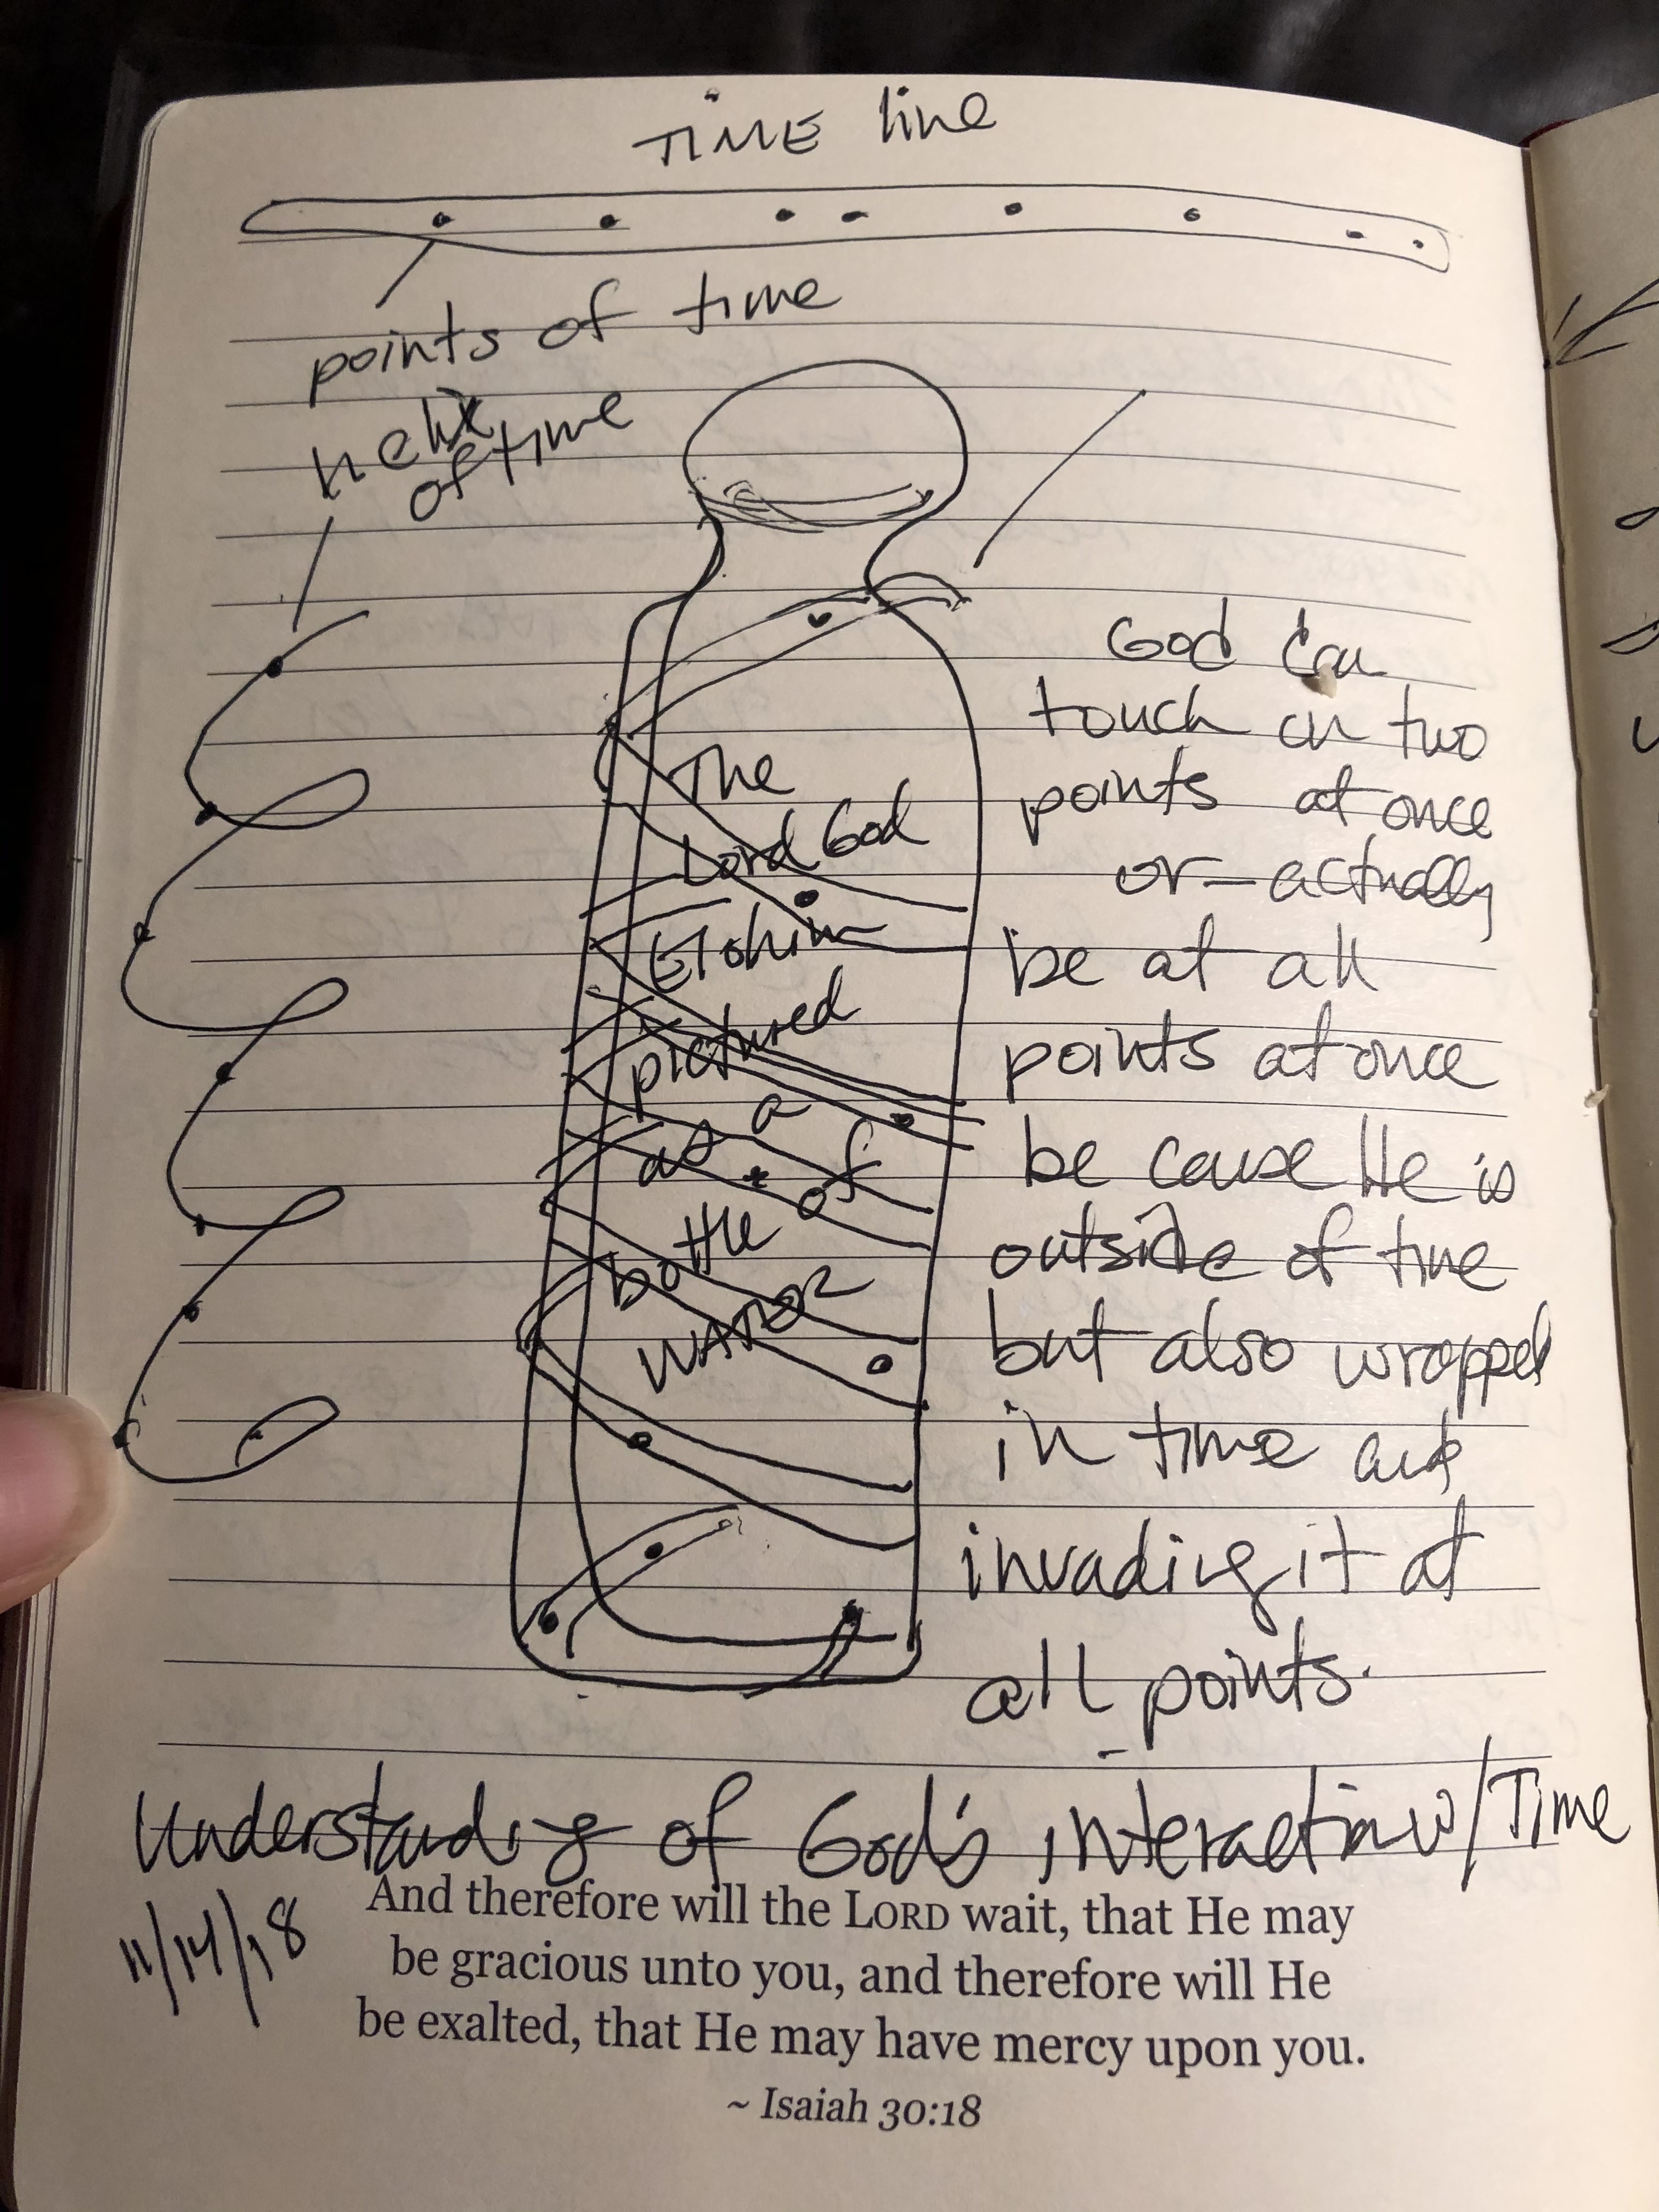 TIME line
points of time
helix
of time
The
Lord God
Elohim
pictured
as a
bottle of
WATER
God Can
touch on two
points at once
or—actually
be at all
points at once
be cause He is
outside of time
but also wrapped
in time and
invading it at
all points.
Understanding of God's interaction w/Time
11/14/18
And therefore will the LORD wait, that He may
be gracious unto you, and therefore will He
be exalted, that He may have mercy upon you.
~ Isaiah 30:18